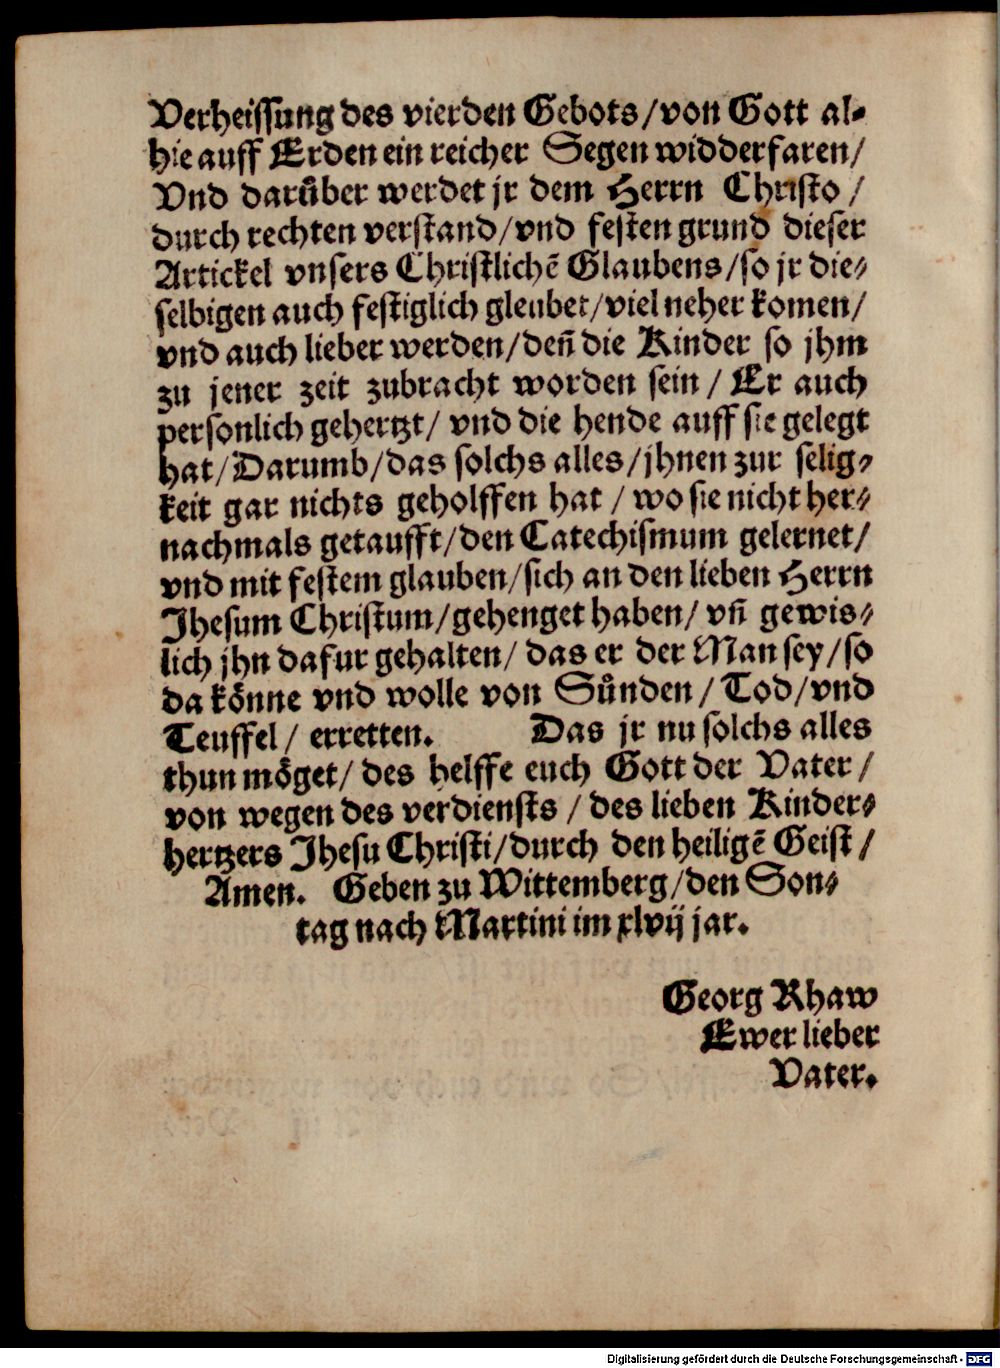 Verheissung des vierden Gebots/von Gott al⸗
hie auff Erden ein reicher Segen widderfaren/
Vnd darůber werdet jr dem Herrn Christo /
durch rechten verstand/vnd festen grund dieser
Artickel vnsers Christlichẽ Glaubens/so jr die⸗
selbigen auch festiglich gleubet/viel neher komen/
vnd auch lieber werden/deñ die Kinder so jhm
zu jener zeit zubracht worden sein / Er auch
personlich gehertzt/ vnd die hende auff sie gelegt
hat/Darumb/das solchs alles/jhnen zur selig⸗
keit gar nichts geholffen hat / wo sie nicht her⸗
nachmals getaufft/den Catechismum gelernet/
vnd mit festem glauben/sich an den lieben Herrn
Jhesum Christum/gehenget haben/ vñ gewis⸗
lich jhn dafur gehalten/ das er der Man sey/so
da kőnne vnd wolle von Sůnden / Tod/vnd
Teuffel/ erretten. Das jr nu solchs alles
thun mőget/ des helffe euch Gott der Vater /
von wegen des verdiensts / des lieben Kinder⸗
hertzers Jhesu Christi/durch den heiligẽ Geist /
Amen. Geben zu Wittemberg/den Son⸗
tag nach Martini im xlvij jar.
Georg Rhaw
Ewer lieber
Vater.
Digitalisierung gefördert durch die Deutsche Forschungsgemeinschaft - DFG